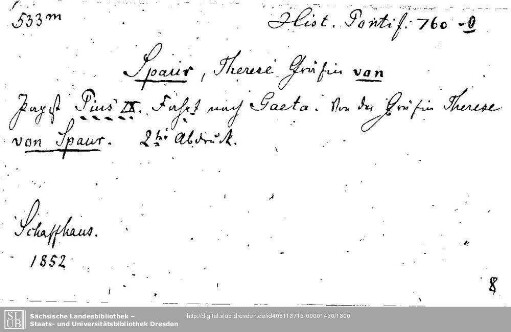 533ᵐ
Hist. Pontif. 760 -0
Spaur, Therese Gräfin von
Papst Pius IX. Fahrt nach Gaeta. Von der Gräfin Therese
von Spaur. 2ter Abdruck.
Schaffhaus.
1852
8
SLUB
Sächsische Landesbibliothek –
Staats- und Universitätsbibliothek Dresden